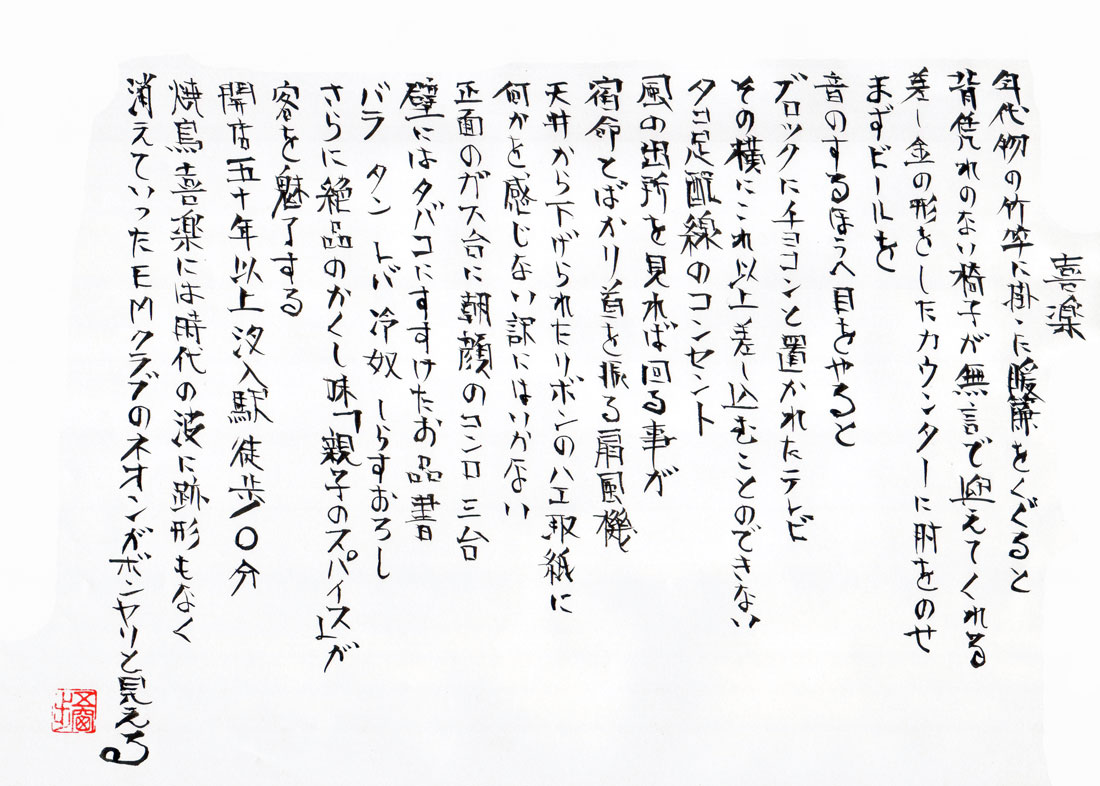 喜楽
年代物の竹竿に掛った暖簾をくぐると
背凭れのない椅子が無言で迎えてくれる
差し金の形をしたカウンターに肘をのせ
まずビールを
音のするほうへ目をやると
ブロックにチョコンと置かれたテレビ
その横にこれ以上差し込むことのできない
タコ足配線のコンセント
風の出所を見れば回る事が
宿命とばかり首を振る扇風機
天井から下げられたリボンのハエ取紙に
何かを感じない訳にはいかない
正面のガス台に朝顔のコンロ三台
壁にはタバコにすすけたお品書
バラ タン トバ 冷奴 しらすおろし
さらに絶品のかくし味「親子のスパイス」が
客を魅了する
開店五十年以上汐入駅徒歩10分
焼鳥喜楽には時代の波に跡形もなく
消えていったEMクラブのネオンがボンヤリと見える